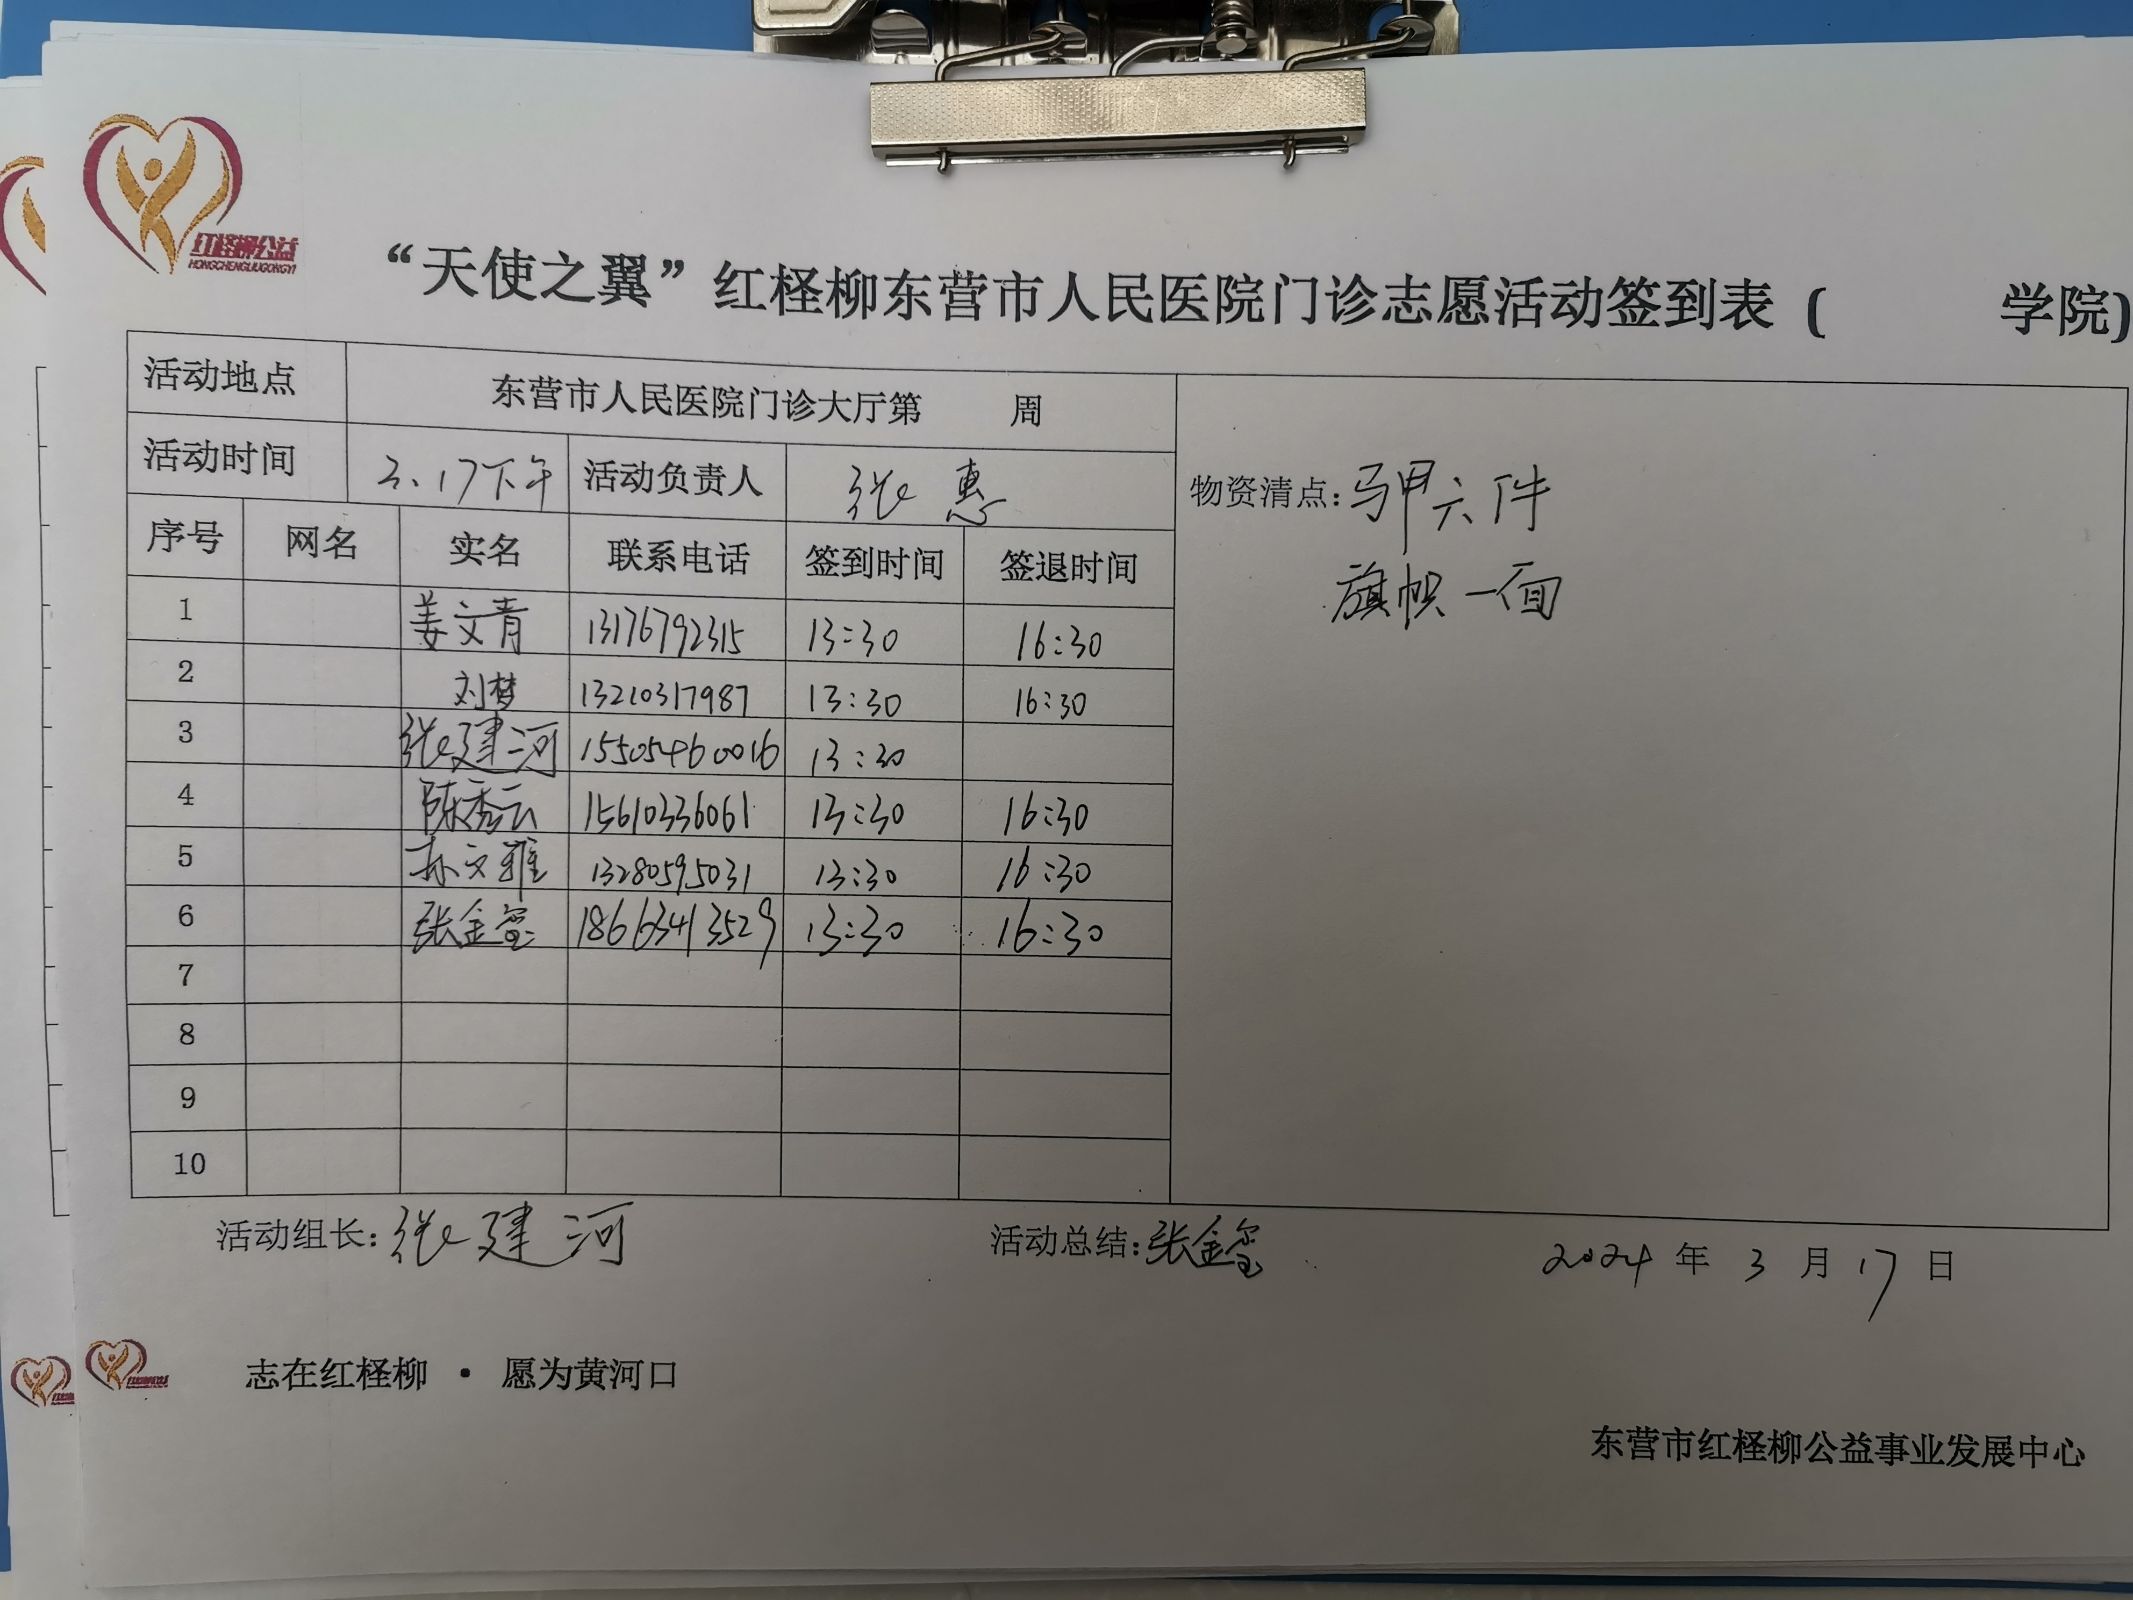 红柽柳公益
HONGCHENGLIUGONGYI
“天使之翼”红柽柳东营市人民医院门诊志愿活动签到表（ 学院)
活动地点 东营市人民医院门诊大厅第 周
活动时间 3.17下午 活动负责人 张惠
物资清点:马甲六件
旗帜一面
序号 网名 实名 联系电话 签到时间 签退时间
1 姜文青 13176792315 13:30 16:30
2 刘梦 13210317987 13:30 16:30
3 张建河 15505460016 13:30
4 陈秀云 15610336061 13:30 16:30
5 孙文雅 13280595031 13:30 16:30
6 张金玺 18663413529 13:30 16:30
7
8
9
10
活动组长:张建河 活动总结:张金玺 2024 年 3 月 17 日
志在红柽柳 · 愿为黄河口
东营市红柽柳公益事业发展中心